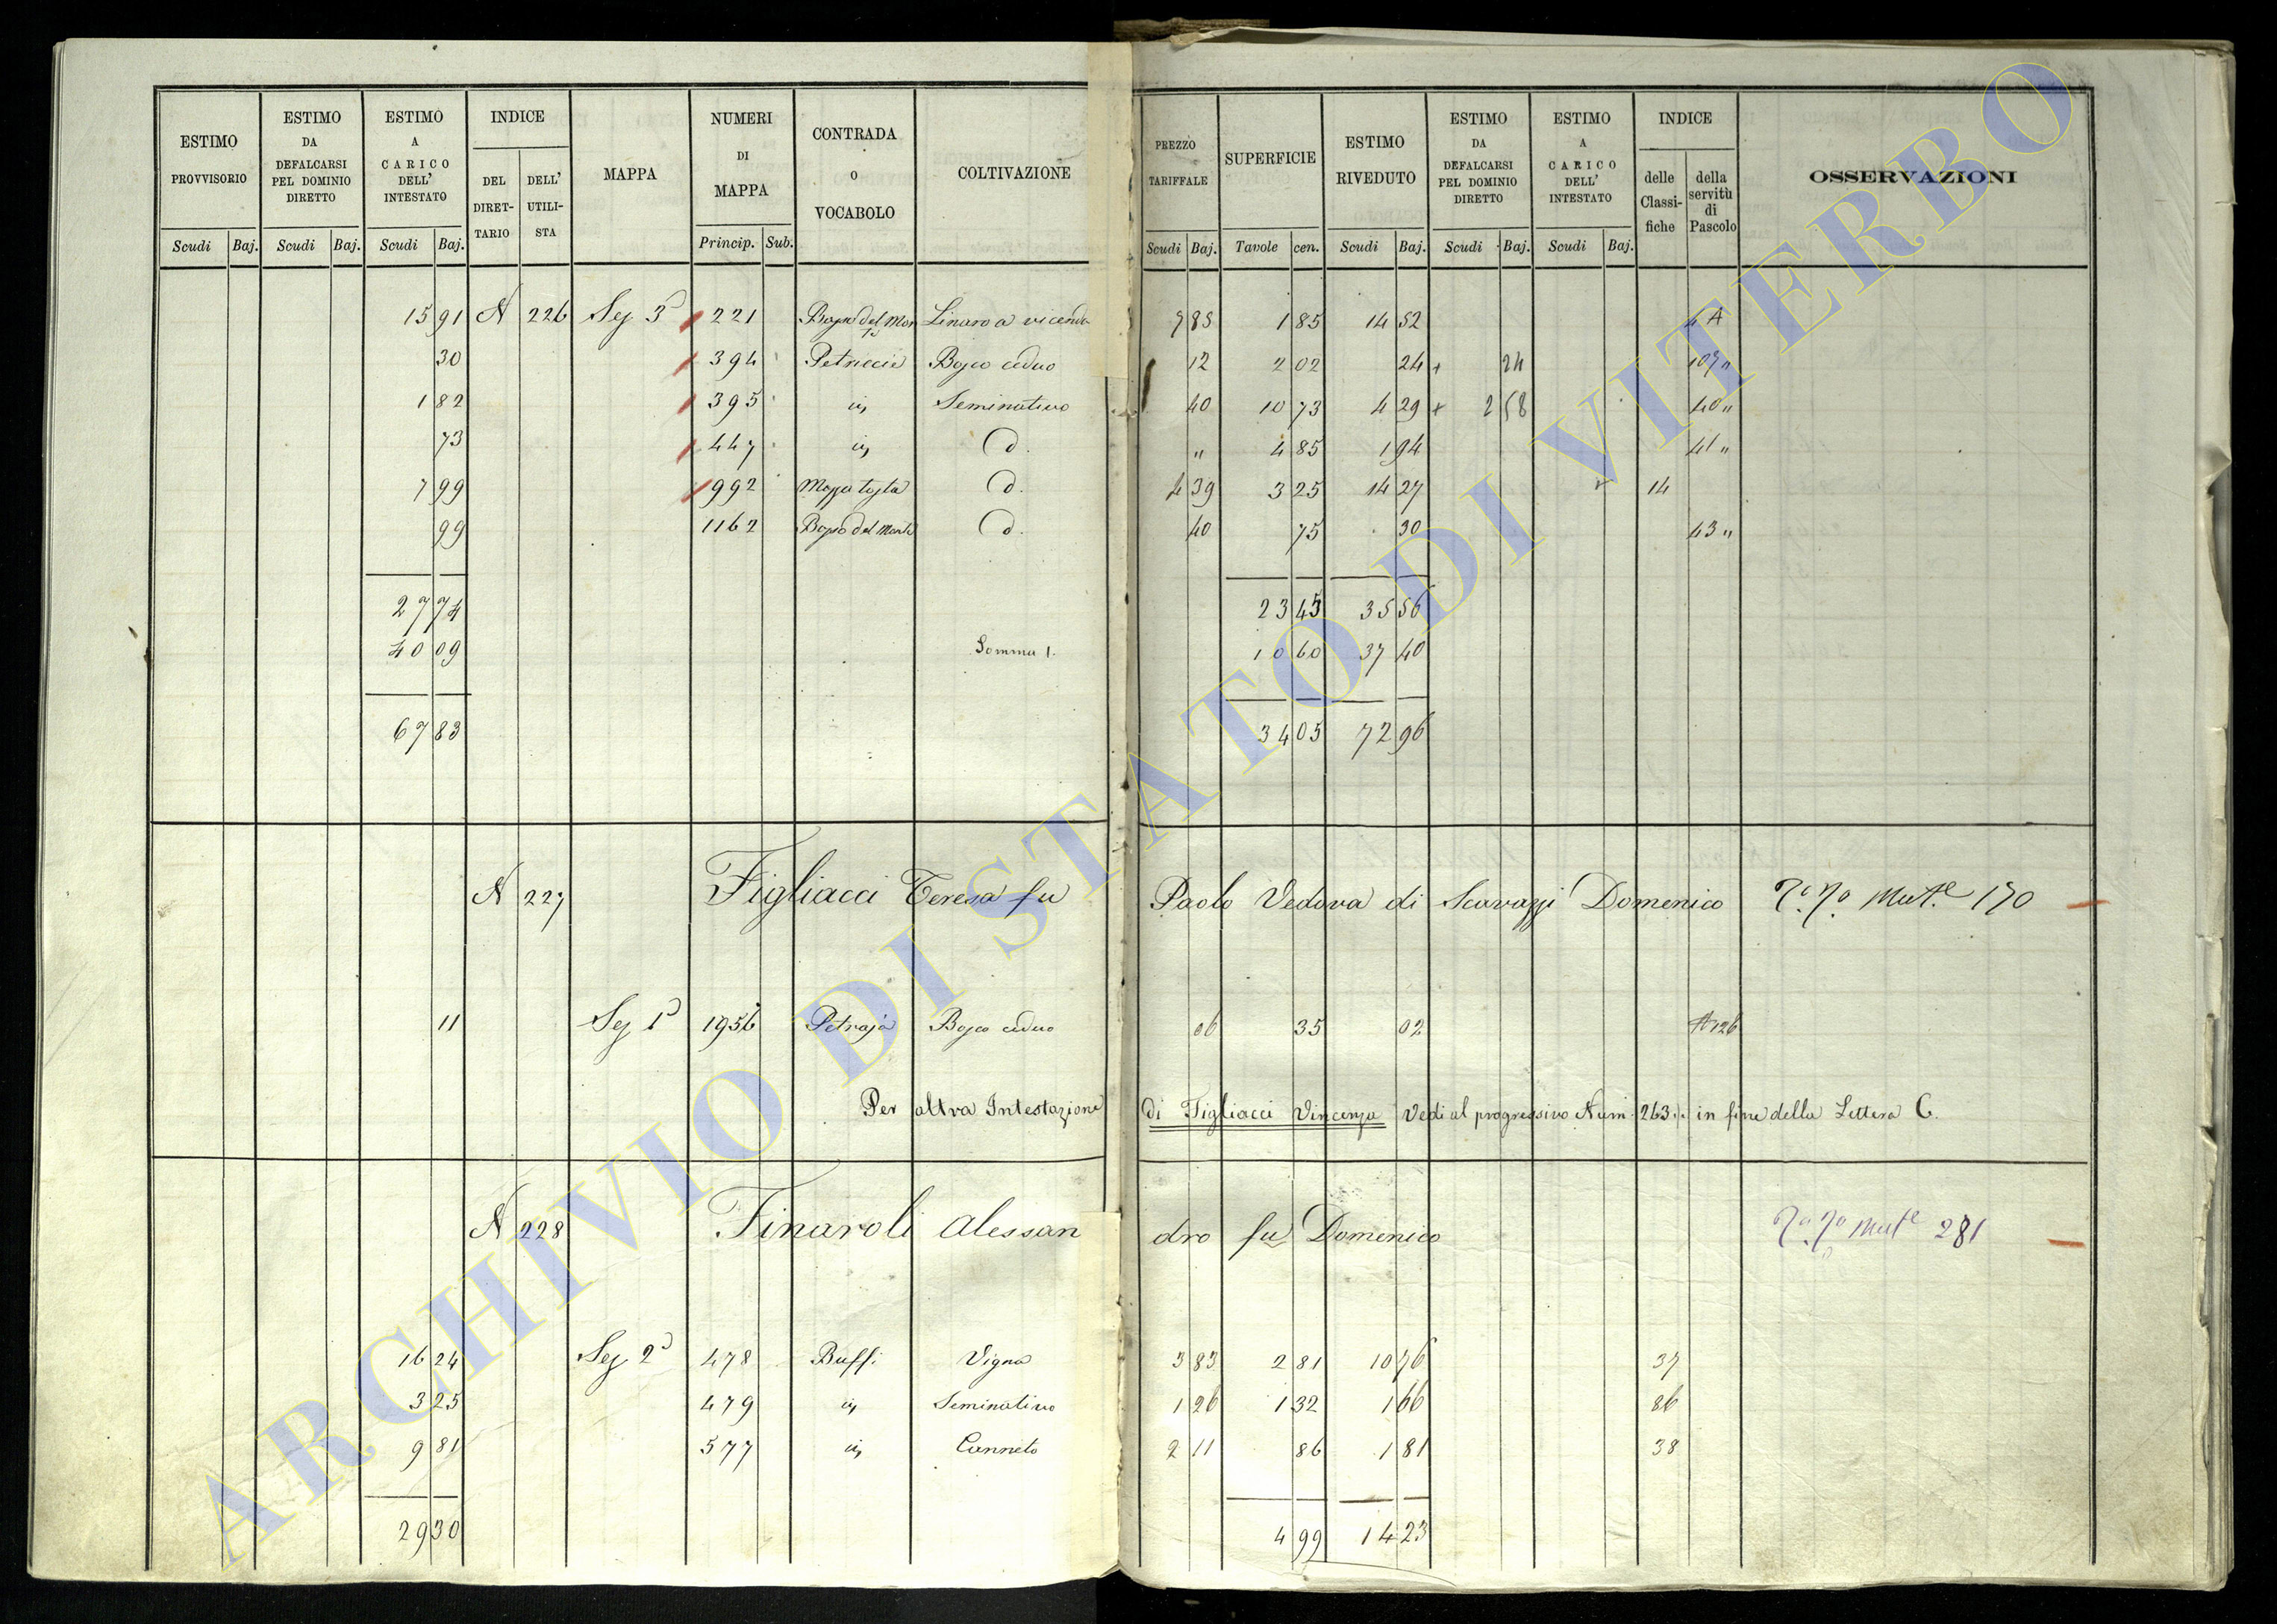 ESTIMO PROVVISORIO | ESTIMO DA DEFALCARSI PEL DOMINIO DIRETTO | ESTIMO A CARICO DELL' INTESTATO | INDICE DEL DIRET-TARIO | DELL' UTILI-STA | MAPPA | NUMERI DI MAPPA | CONTRADA O VOCABOLO | COLTIVAZIONE | PREZZO TARIFFALE | SUPERFICIE | ESTIMO RIVEDUTO | ESTIMO DA DEFALCARSI PEL DOMINIO DIRETTO | ESTIMO A CARICO DELL' INTESTATO | INDICE delle Classi-fiche | della servitù di Pascolo | OSSERVAZIONI
Scudi Baj. | Scudi Baj. | Scudi Baj. | Princip. Sub. | Scudi Baj. | Tavole cen. | Scudi Baj. | Scudi Baj. | Scudi Baj.
15 91 N 226 Sez 3ª 221 del Mon te Linaro a vicenda 7 85 1 85 14 52 4 A
30 394 Petriccie Bosco ceduo 12 2 02 24 + 24 107 "
1 82 395 id Seminativo 40 10 73 4 29 + 2 58 40 "
73 447 id d. " 4 85 1 94 41 "
7 99 992 d. 4 39 3 25 14 27 14
99 1162 del Monte d. 40 75 30 43 "
27 74 23 45 35 56
40 09 Somma 1. 10 60 37 40
67 83 34 05 72 96
N 227 Figliacci Teresa fu Paolo Vedova di Scavazzi Domenico 170
11 Sez 1ª 1956 Petraja Bosco ceduo 06 35 02 A 126
Per altra Intestazione di Figliacci Vincenza Vedi al progressivo Num. 263. in fine della Lettera C.
N 228 Finaroli Alessan dro fu Domenico 281
16 24 Sez 2ª 478 Buffi Vigna 3 83 2 81 10 76 37
3 25 479 id Seminativo 1 26 1 32 1 66 86
9 81 577 id Canneto 2 11 86 1 81 38
29 30 4 99 14 23
ARCHIVIO DI STATO DI VITERBO